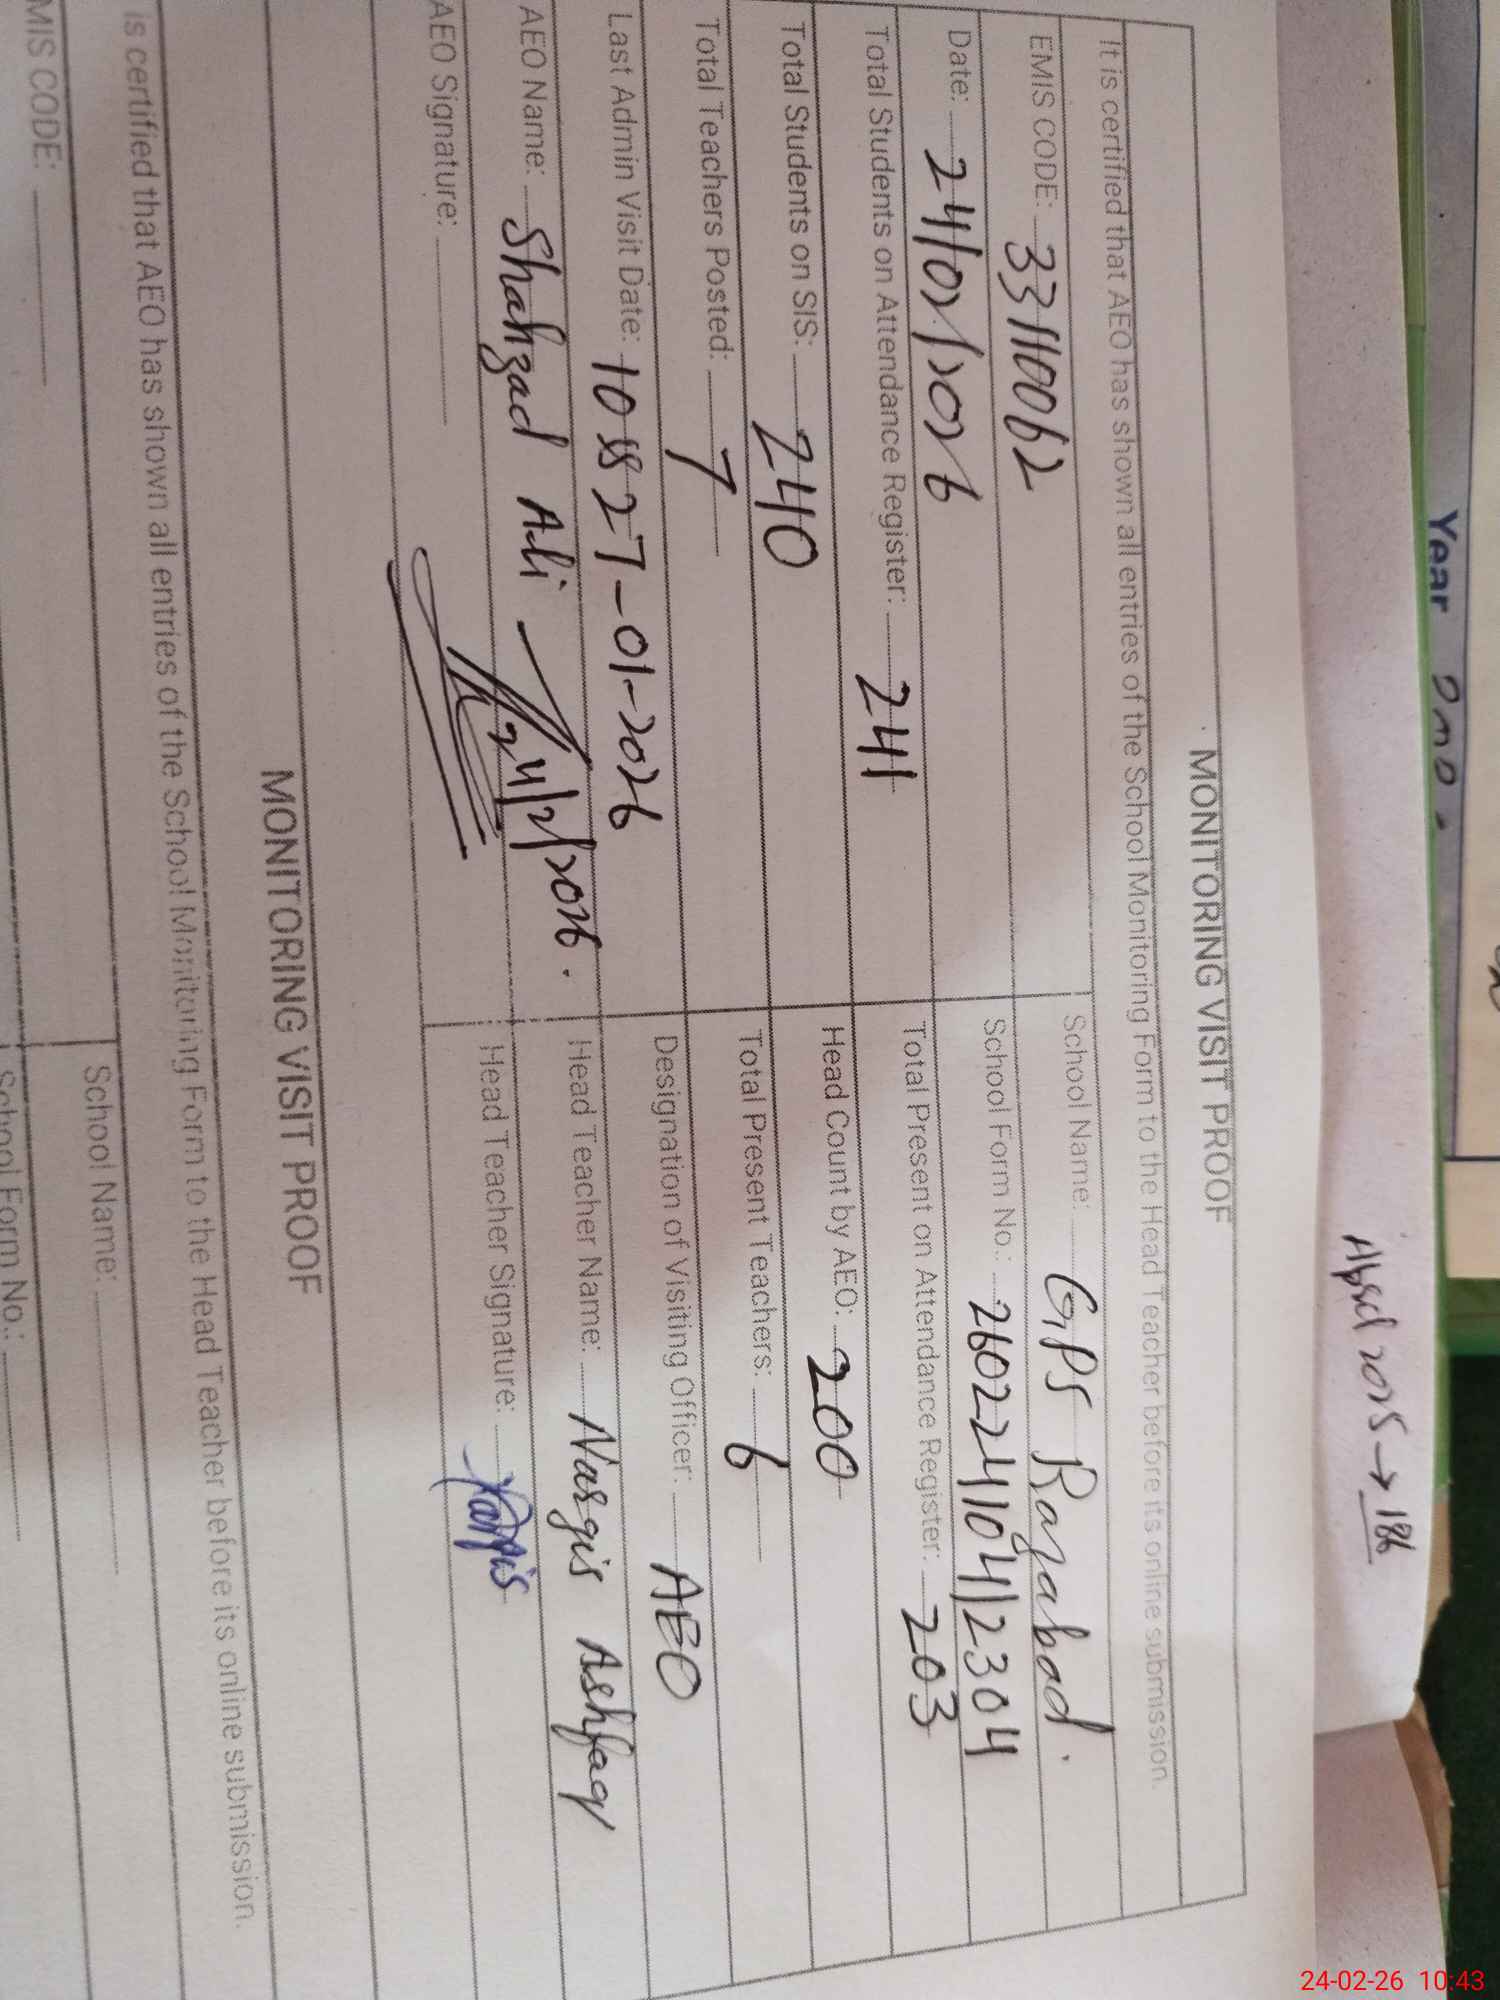 Year
April 2025 → 186
MONITORING VISIT PROOF
It is certified that AEO has shown all entries of the School Monitoring Form to the Head Teacher before its online submission.
EMIS CODE: 33110062 School Name: GPS Razabad.
Date: 24/02/2026 School Form No.: 26022410412304
Total Students on Attendance Register: 241 Total Present on Attendance Register: 203
Total Students on SIS: 240 Head Count by AEO: 200
Total Teachers Posted: 7 Total Present Teachers: 6
Last Admin Visit Date: 27-01-2026 Designation of Visiting Officer: AEO
AEO Name: Shahzad Ali Head Teacher Name: Nasgis Ashfaq
AEO Signature: 24/2/2026. Head Teacher Signature:
MONITORING VISIT PROOF
is certified that AEO has shown all entries of the School Monitoring Form to the Head Teacher before its online submission.
MIS CODE: School Name:
School Form No.:
24-02-26 10:43